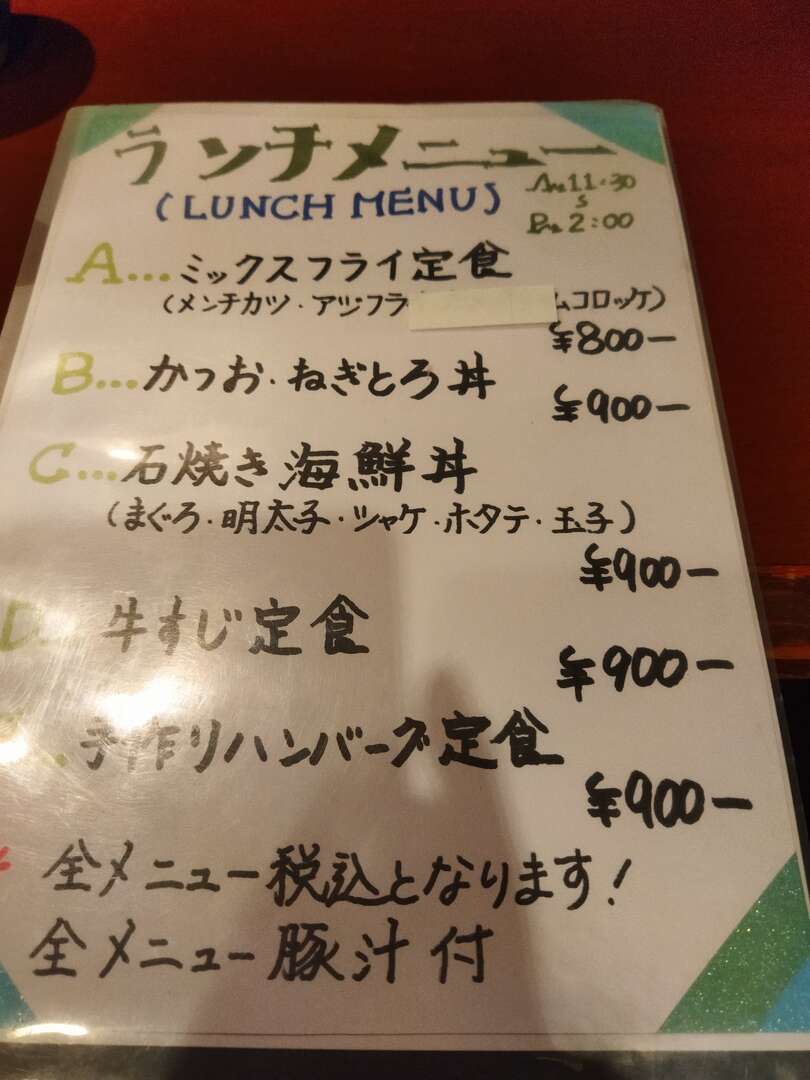 ランチメニュー
(LUNCH MENU)
AM 11:30
〜
PM 2:00
A...ミックスフライ定食
(メンチカツ・アジフラ ムコロッケ)
¥800-
B...かつお・ねぎとろ丼
¥900-
C...石焼き海鮮丼
(まぐろ・明太子・シャケ・ホタテ・玉子)
¥900-
D... 牛すじ定食
¥900-
手作りハンバーグ定食
¥900-
全メニュー税込となります!
全メニュー豚汁付